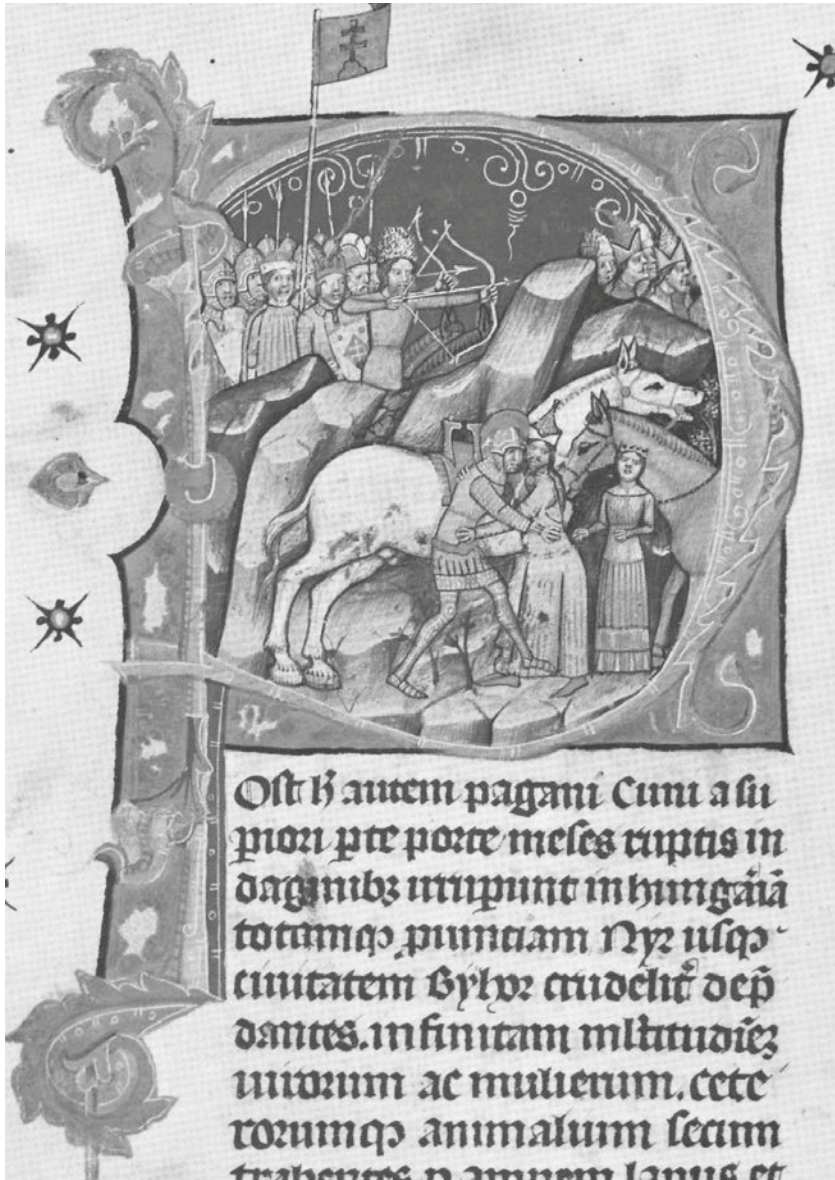 Ost h̄ autem pagani Cuni a su
p̲iori p̲te porte meses ruptis in
daginibꝫ irrupūnt in hungāiā
totāmqꝫ p̲uinciam Nyr usqꝫ
ciuitatem Byhor crudelit̄ dep̄
dantes. infinitam ml̄titudiēꝫ
uirorum ac mulierum. cete
rorumqꝫ animalium secum
trahentes p̲ amnem lapus et